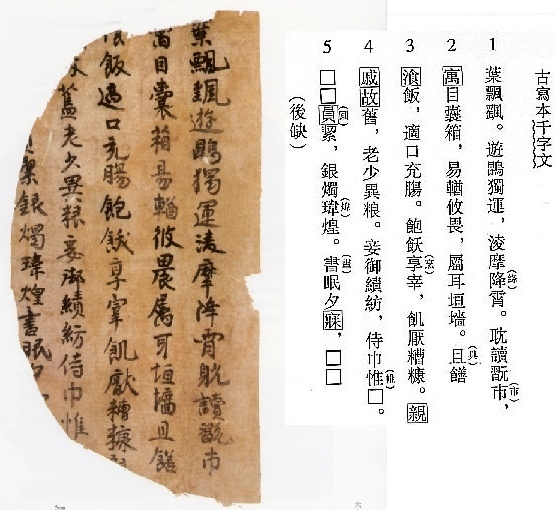 古寫本千字文
1 葉飄颻。遊鵾獨運，凌摩降(絳)霄。耽讀翫市(市)，
2 寓目囊箱，易輶攸畏，屬耳垣墻。且(具)饍
3 飡飯，適口充腸。飽飫享(烹)宰，飢厭糟糠。親
4 戚故舊，老少異粮。妾御績紡，侍巾惟(帷)□。
5 □□員(圓)絜，銀燭瑋(煒)煌。書(晝)眠夕寐，□□
(後缺)
葉飄颻遊鵾獨運凌摩降霄躭讀翫市
寓目囊箱易輶攸畏屬耳垣墻且饍
飯適口充腸飽飫享宰飢厭糟糠
舊老少異粮妾御績紡侍巾惟
絜銀燭瑋煌書眠夕